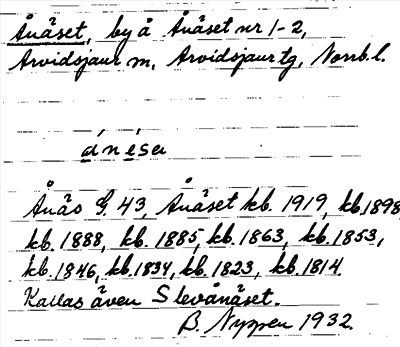 Ånäset, by å Ånäset nr 1-2,
Arvidsjaur m, Arvidsjaur tg, Norrb.l.
ánésa
Ånäs G. 43, Ånäset kb. 1919, kb. 1898
kb. 1888, kb. 1885, kb. 1863, kb. 1853,
kb. 1846, kb. 1834, kb. 1823, kb. 1814.
Kallas även Slevånäset.
B. Nyppen 1932.